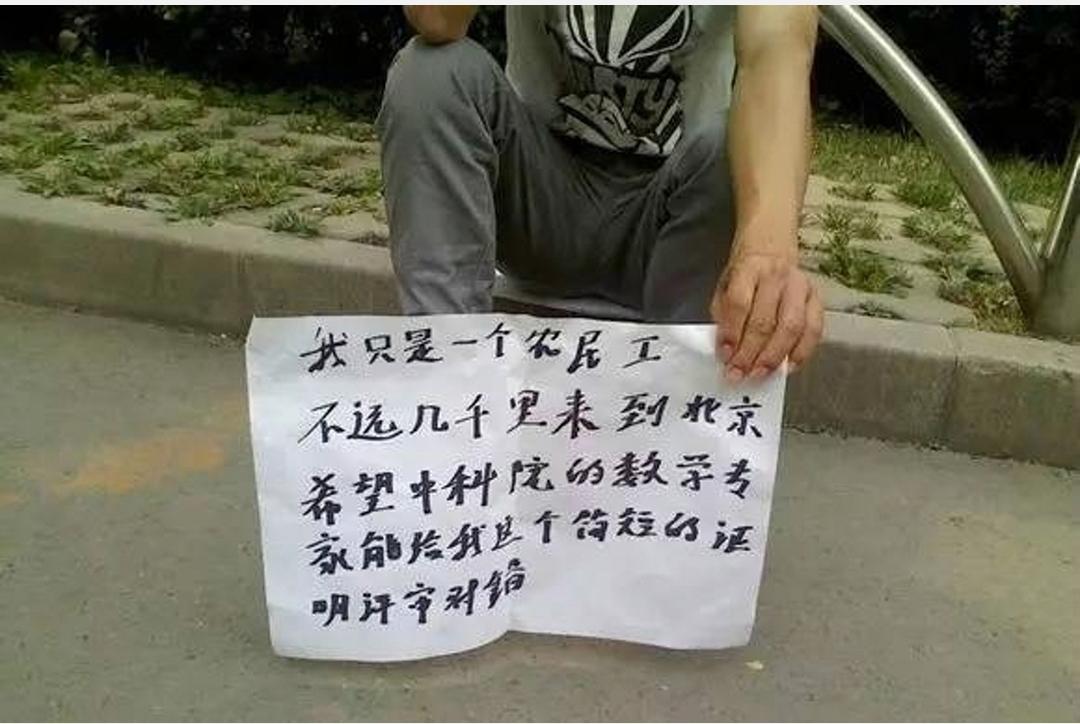 RTY
我只是一个农民工
不远几千里来到北京
希望中科院的数学专
家能给我这个简短的证
明评审对错